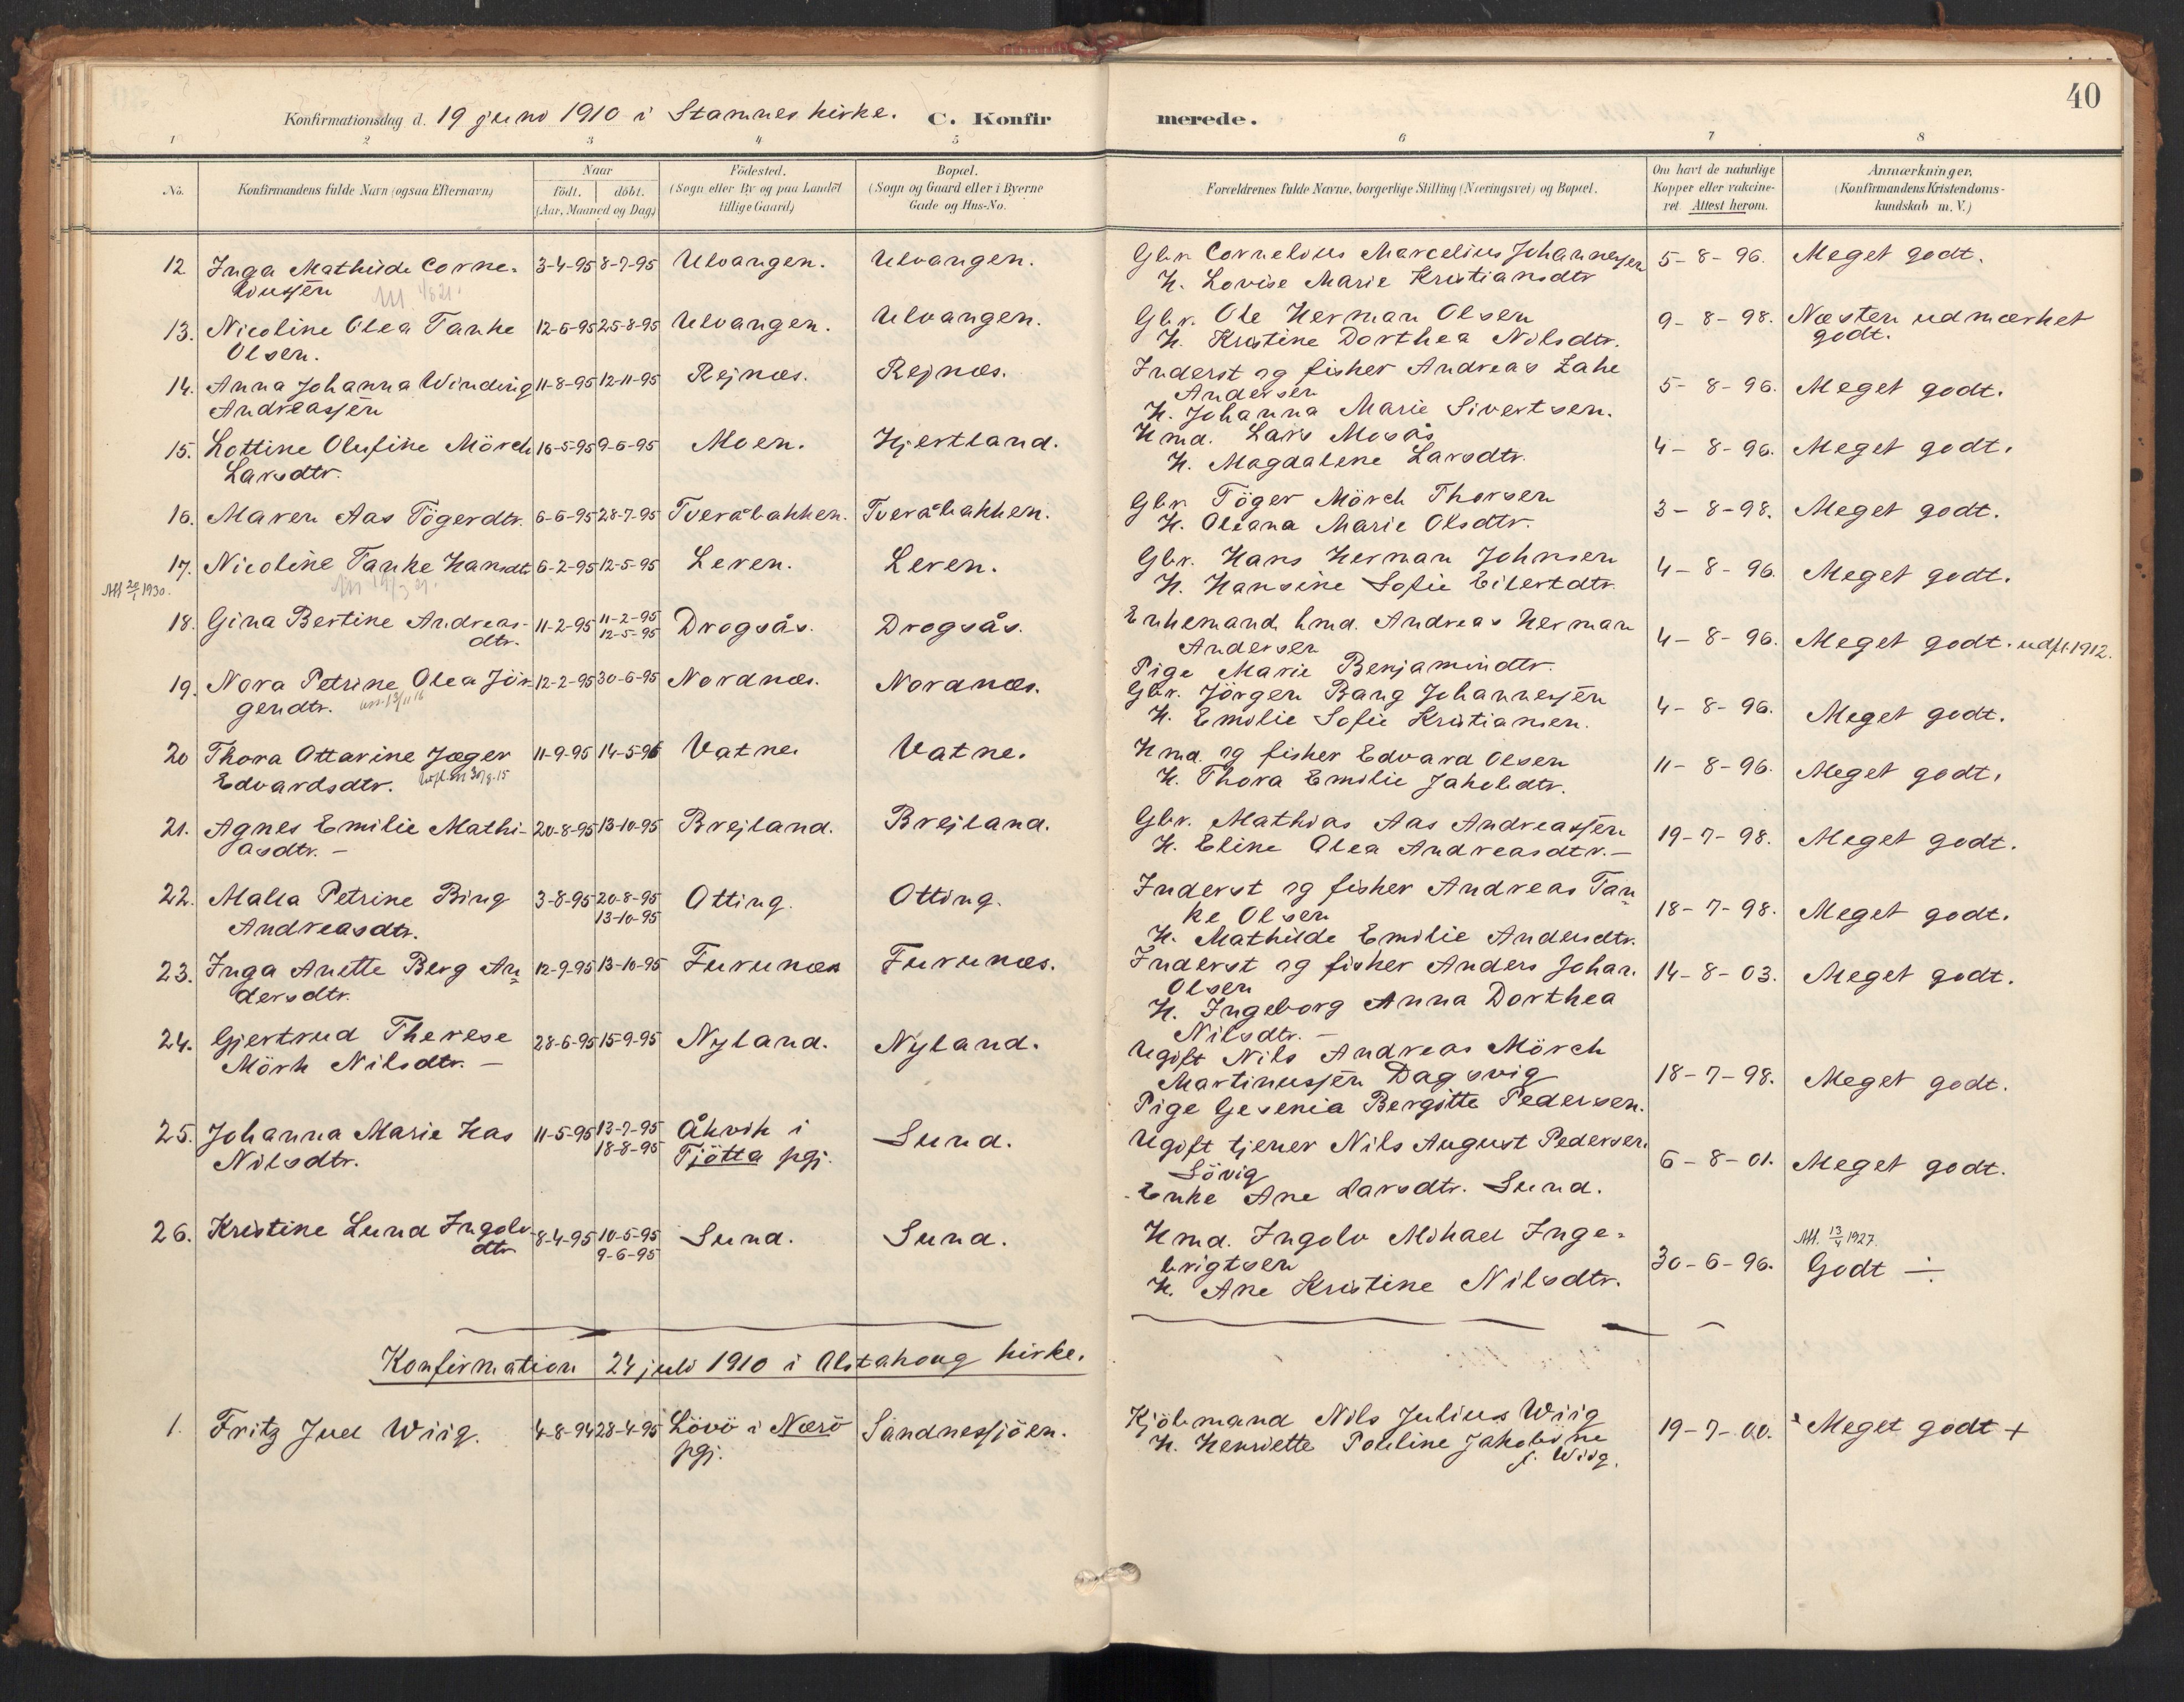 40
Konfirmationsdag d. 19 juni 1910 i Stamnes kirke. C. Konfirmerede.
1 2 3 4 5 6 7 8
No.
Konfirmandens fulde Navn (ogsaa Efternavn)
Naar
født. døbt.
(Aar, Maaned og Dag)
Födested.
(Sogn eller By og paa Landet
tillige Gaard)
Bopæl.
(Sogn og Gaard eller i Byerne
Gade og Hus-No.
Forældrenes fulde Navne, borgerlige Stilling (Næringsvei) og Bopæl.
Om havt de naturlige
Kopper eller vakcine-
ret. Attest herom.
Anmærkninger,
(Konfirmandens Kristendoms-
kundskab m. V.)
12 Inga Mathilde Corne- 3-4-95 8-7-95 Ulvangen. Ulvangen. Gbr. Cornelius Marcelius Johannesen 5-8-96. Meget godt.
liussen H. Lovise Marie Kristiansdtr
13. Nicoline Olea Tanke 12-6-95 25-8-95 Ulvangen. Ulvangen. Gbr. Ole Herman Olsen 9-8-98. Næsten udmærket
Olsen. H. Kristine Dorthea Nilsdtr. godt.
14. Anna Johanna Winding 11-8-95 12-11-95 Rejnæs. Rejnæs. Inderst og fisker Andreas Zahe 5-8-96. Meget godt.
Andreassen Andersen
H. Johanna Marie Sivertsen.
15. Lottine Olufine Mörch 16-5-95 9-6-95 Moen. Hjertland. Hmd. Lars Mosås 4-8-96. Meget godt.
Larsdtr. H. Magdalene Larsdtr.
16. Maren Aas Tögerdtr. 6-6-95 28-7-95 Tveråbakken. Tveråbakken. Gbr. Töger Mörch Thorsen 3-8-98. Meget godt.
H. Oleana Marie Olsdtr.
17. Nicoline Tanke Hansdtr 6-2-95 12-5-95 Leren. Leren. Gbr. Hans Herman Johnsen 4-8-96. Meget godt.
H. Hansine Sofie Eilertdtr.
Att 20/1 1930.
18. Gina Bertine Andreas- 11-2-95 11-2-95 Drogsås. Drogsås. Enkemand hmd. Andreas Herman 4-8-96. Meget godt. udft. 1912.
dtr. 12-5-95 Andersen
Pige Marie Benjamindtr.
19. Nora Petrine Olea Jör- 12-2-95 30-6-95 Nordnæs. Nordnæs. Gbr. Jörgen Bang Johannesen 4-8-96. Meget godt.
gendtr. H. Emilie Sofie Kristiansen.
20 Thora Ottarine Jæger 11-9-95 14-5-96 Vatne. Vatne. Hmd. og fisker Edvard Olsen 11-8-96. Meget godt.
Edvardsdtr. H. Thora Emilie Jakobdtr.
21. Agnes Emilie Mathi- 20-8-95 13-10-95 Brejland. Brejland. Gbr. Mathias Aas Andreassen 19-7-98. Meget godt.
asdtr. - H. Eline Olea Andreasdtr. -
22. Malla Petrine Bing 3-8-95 20-8-95 Otting. Otting. Inderst og fisker Andreas Tan- 18-7-98. Meget godt.
Andreasdtr. 13-10-95 ke Olsen
H. Mathilde Emilie Andersdtr.
23. Inga Anette Berg An- 12-9-95 13-10-95 Furunæs Furunæs. Inderst og fisker Anders Johan. 14-8-03. Meget godt.
dersdtr. Olsen
H. Ingeborg Anna Dorthea
Nilsdtr. -
24. Gjertrud Therese 28-6-95 15-9-95 Nyland. Nyland. Ugift Nils Andreas Mörch 18-7-98. Meget godt.
Mörk Nilsdtr. - Martinussen Dagsvig
Pige Gesenia Bergitte Pedersen.
25. Johanna Marie Has 11-5-95 13-7-95 Åkvik i Sund. Ugift tjener Nils August Pedersen. 6-8-01. Meget godt.
Nilsdtr. 18-8-95 Tjötta pgj. Lövig
Enke Ane Larsdtr. Sund.
26. Kristine Lund Ingolv- 8-4-95 10-5-95 Sund. Sund. Hmd. Ingolv Mikael Inge- 30-6-96. Att. 13/4 1927.
dtr 9-6-95 brigtsen Godt ÷
H. Ane Kristine Nilsdtr.
Konfirmation 24 juli 1910 i Alstahoug kirke.
1. Fritz Juel Wiig. 4-8-94 28-4-95 Lövö i Nærö Sandnessjöen. Kjöbmand Nils Julius Wiig 19-7-00. Meget godt +
pgj. H. Henriette Pouline Jakobine
f. Wiig.